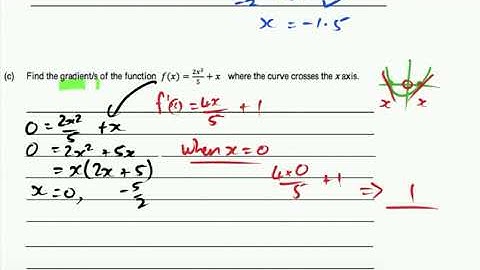 x = -1.5
(c) Find the gradient/s of the function f(x) = 2x²/5 + x where the curve crosses the x axis.
x x
f'(x) = 4x/5 + 1
0 = 2x²/5 + x
0 = 2x² + 5x
when x = 0
= x(2x + 5)
4×0/5 + 1 => 1
x = 0, -5/2